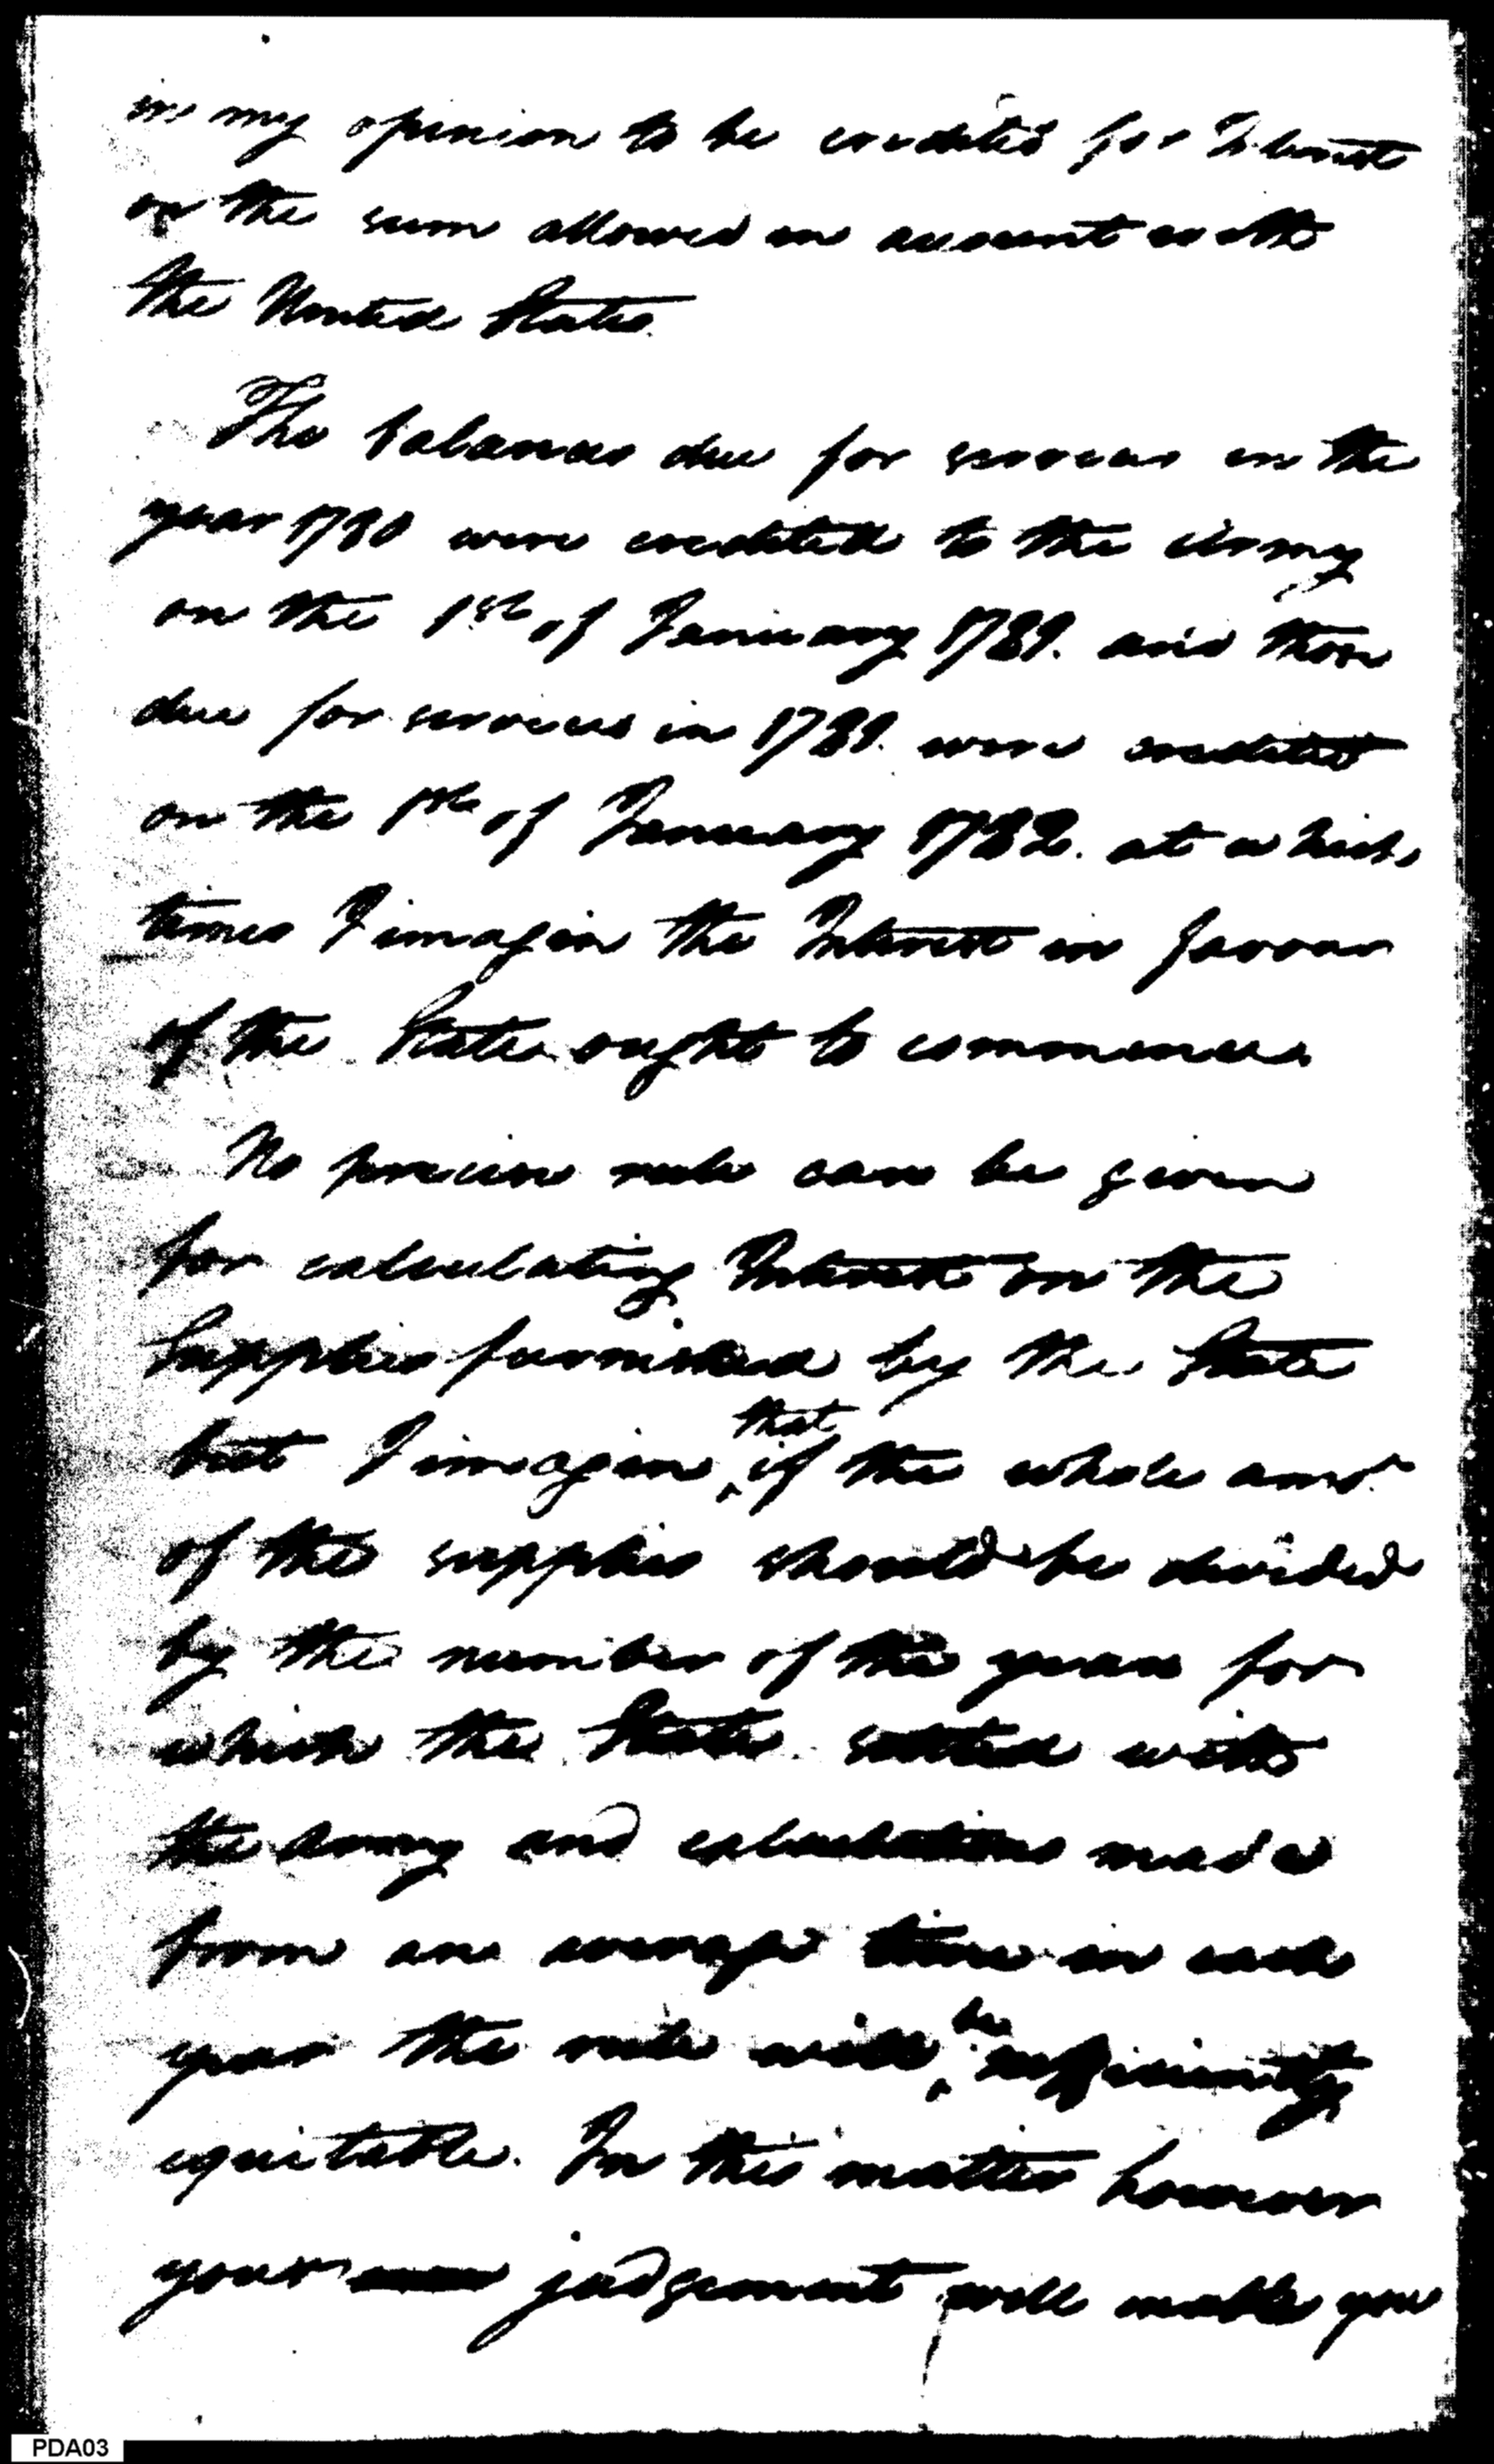 in my opinion to be credited for Interest
on the sum allowed in account with
the United States.
The balances due for services in the
year 1780 were credited to the Army
on the 1st of January 1781. and those
due for services in 1781. were credited
on the 1st of January 1782. at which
times I imagin the Interest in favour
of the State ought to commence.
No precise rule can be given
for calculating Interest on the
Supplies furnished by the State
but I imagin that if the whole amot
of the supplies should be divided
by the number of the years for
which the State settled with
the Army and calculations made
from an average time in each
year the rule will be sufficiently
equitable. In this matter however
your judgement will enable you
PDA03